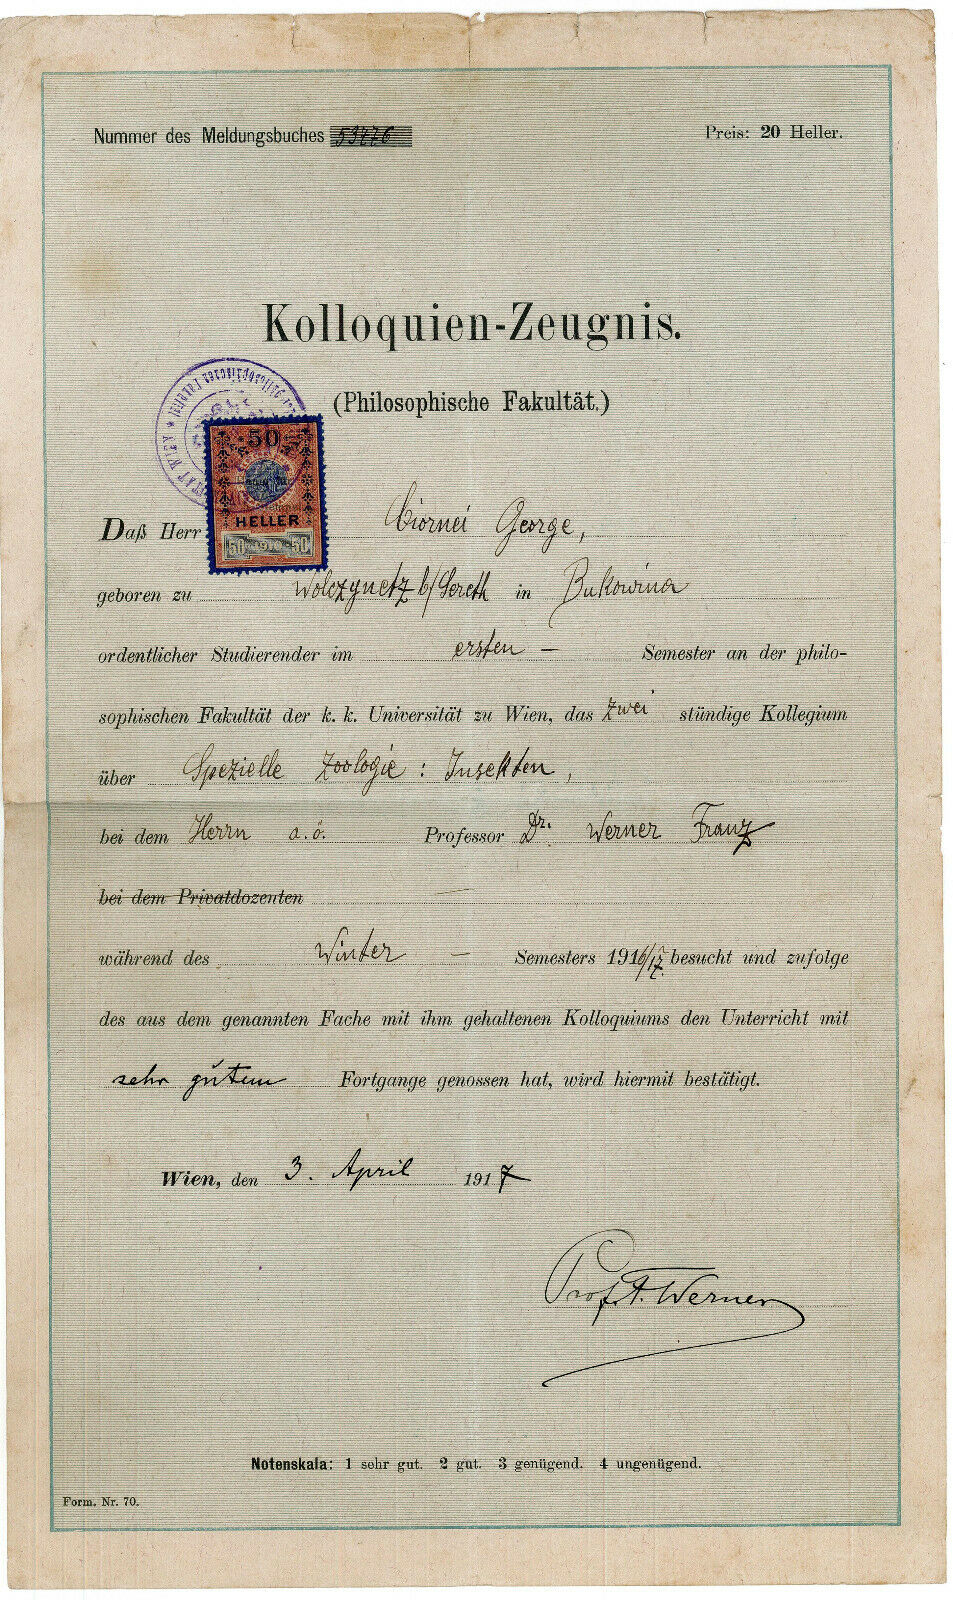 Nummer des Meldungsbuches 53476
Preis: 20 Heller.
Kolloquien-Zeugnis.
(Philosophische Fakultät.)
50
HELLER
50 50
Daß Herr Ciornei George,
geboren zu Wolczynetz b/Sereth in Bukowina
ordentlicher Studierender im ersten – Semester an der philo-
sophischen Fakultät der k. k. Universität zu Wien, das zwei stündige Kollegium
über Spezielle Zoologie: Insekten,
bei dem Herrn a.ö. Professor Dr. Werner Franz
bei dem Privatdozenten —
während des Winter – Semesters 1916/17 besucht und zufolge
des aus dem genannten Fache mit ihm gehaltenen Kolloquiums den Unterricht mit
sehr gutem Fortgange genossen hat, wird hiermit bestätigt.
Wien, den 3. April 1917
Prof. F. Werner
Notenskala: 1 sehr gut. 2 gut. 3 genügend. 4 ungenügend.
Form. Nr. 70.